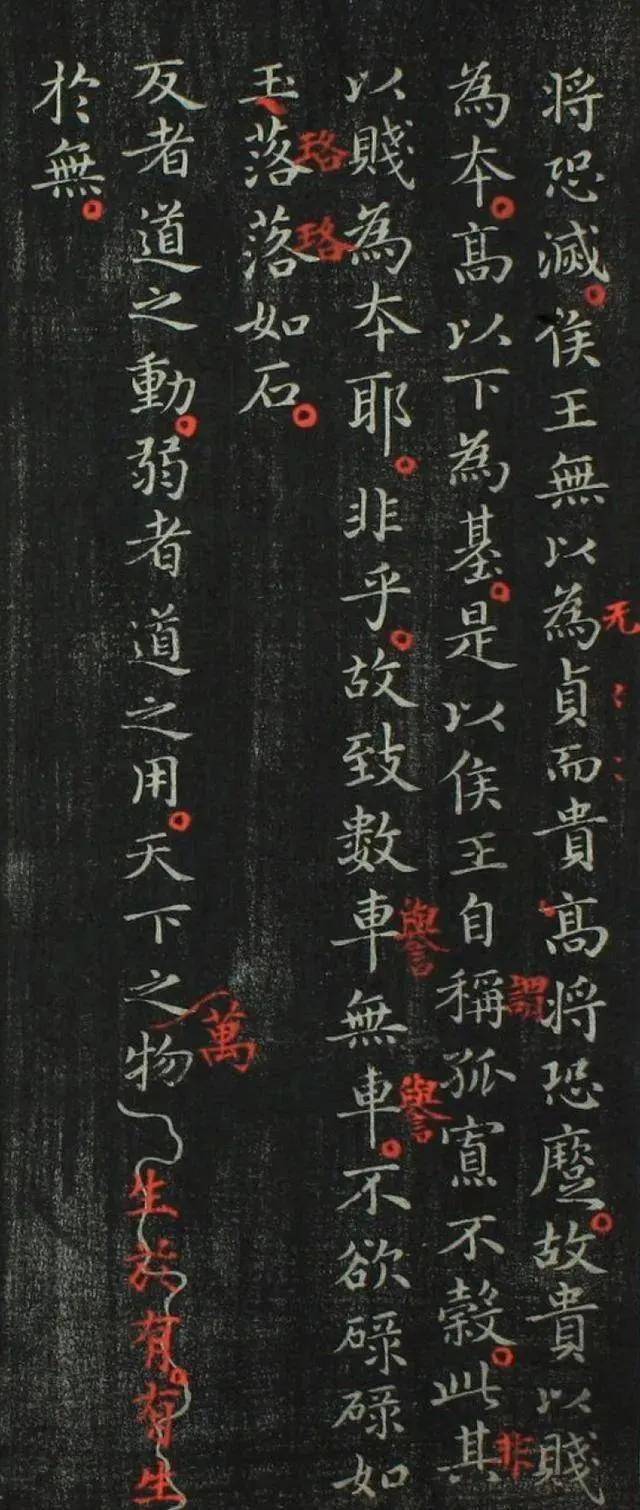 将恐滅。侯王無以為貞而貴高将恐蹷。故貴以賤
無
為本。高以下為基。是以侯王自稱孤寡不穀。此其
謂
非
以賤為本耶。非乎。故致數車無車。不欲碌碌如
譽
譽
玉落落如石。
珞
珞
反者道之動。弱者道之用。天下之物
萬
生於有。有生
於無。